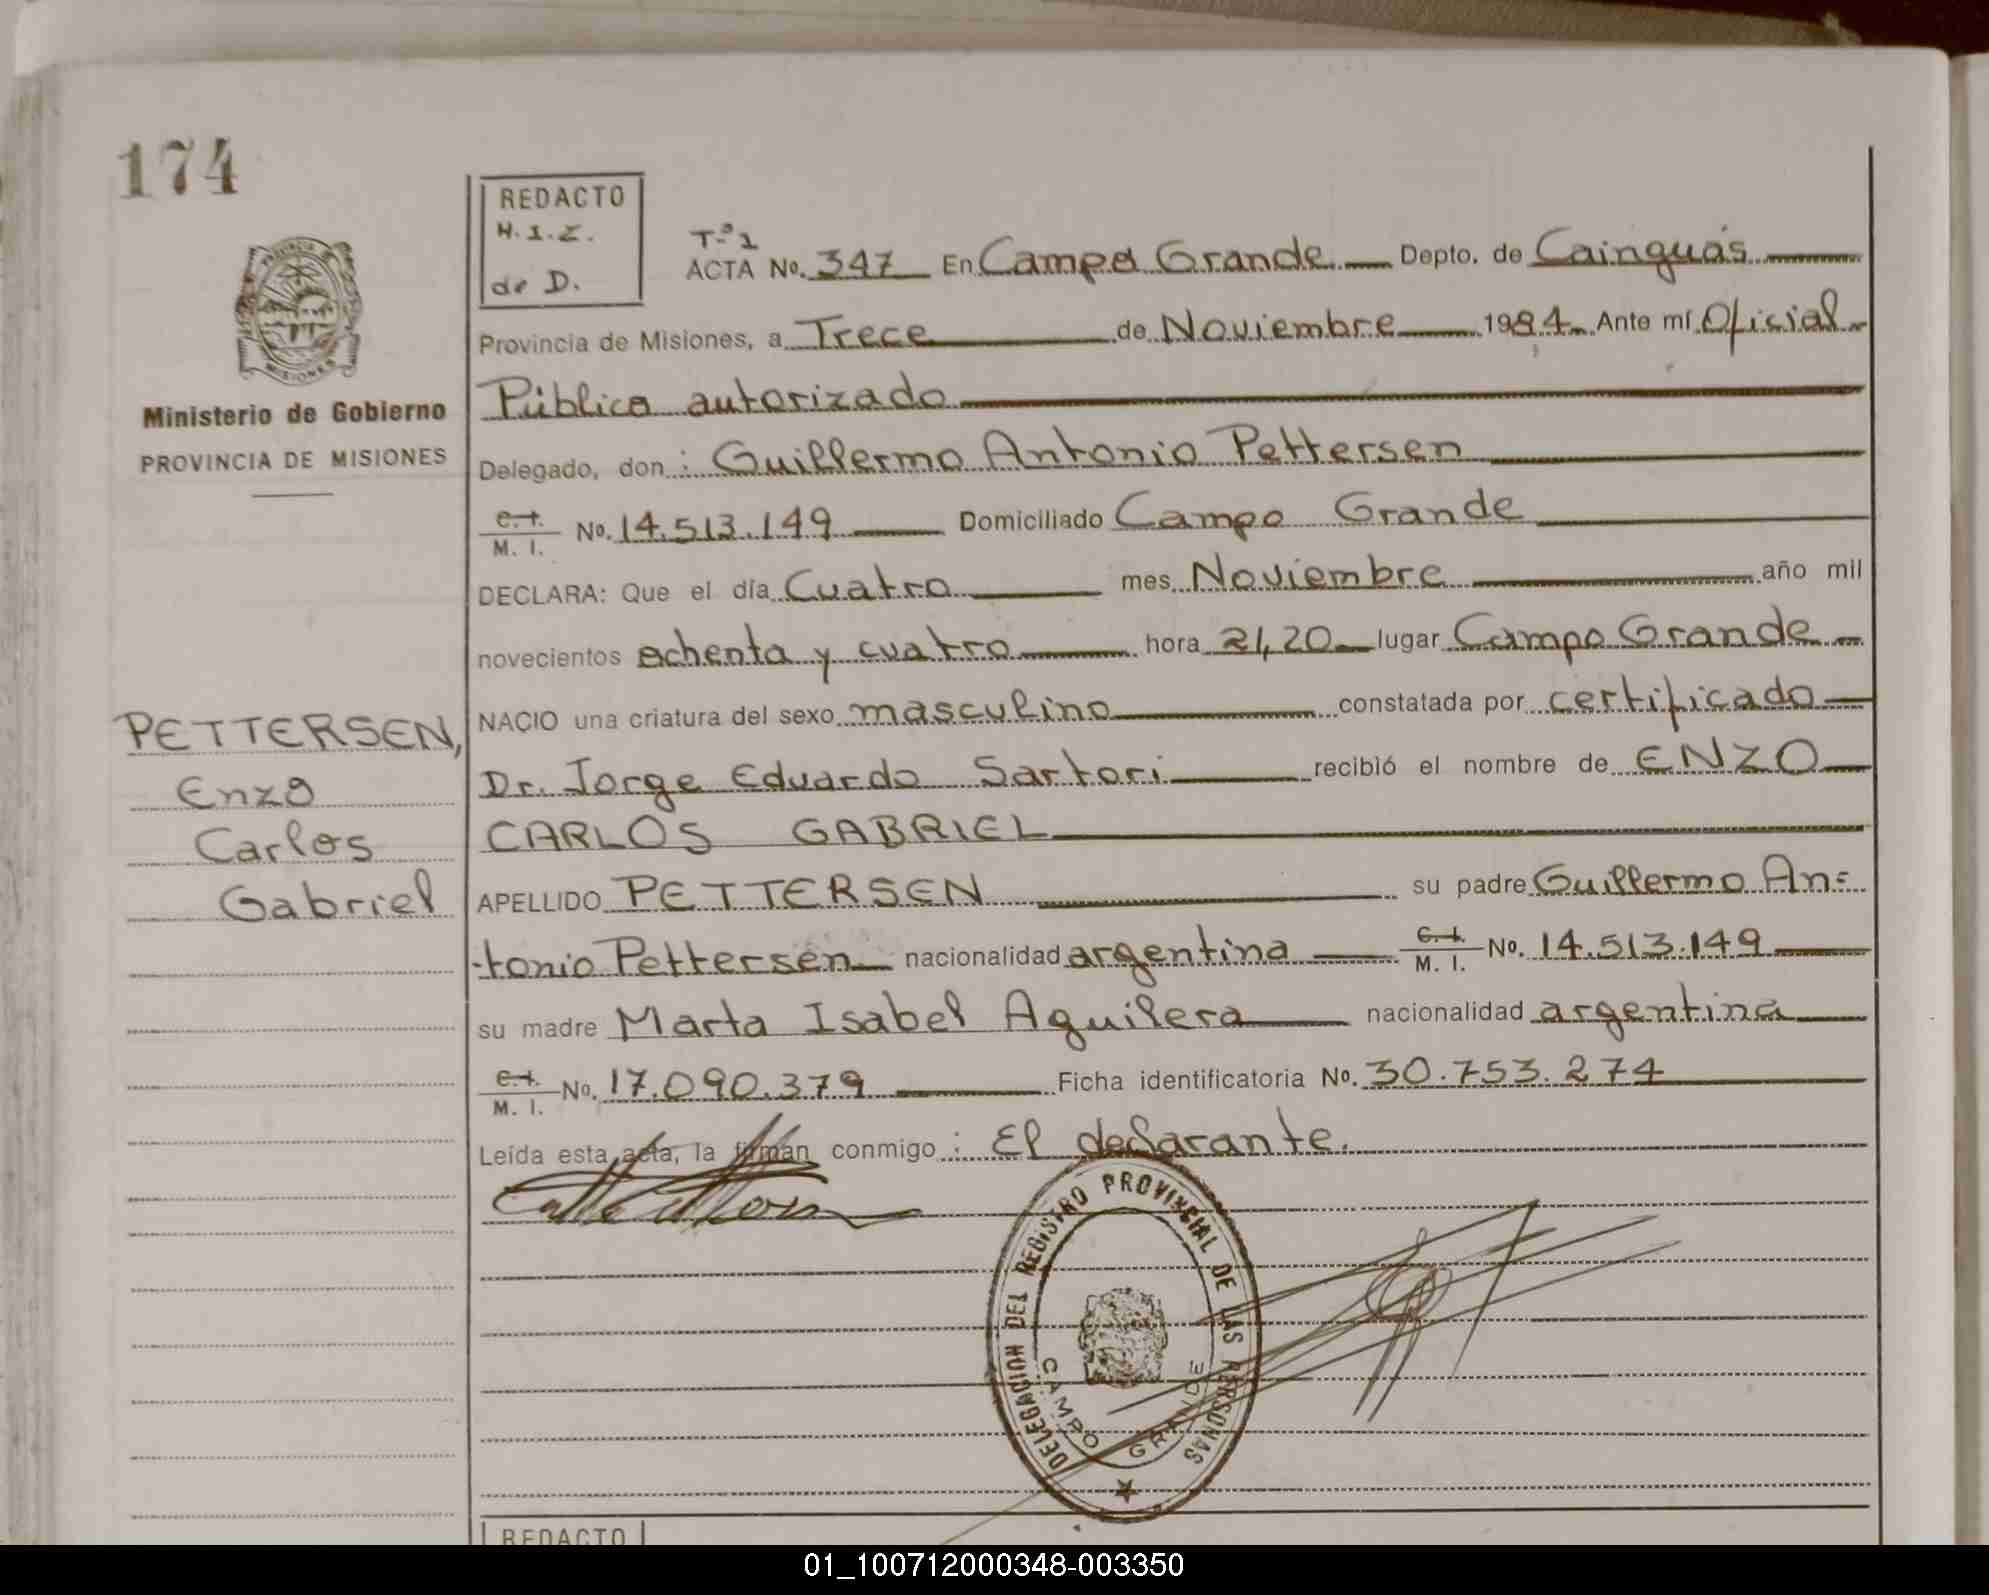 174
REDACTO
H.I.Z.
de D.
T-º 1
ACTA No. 347 En Campo Grande Depto. de Cainguás
Provincia de Misiones, a Trece de Noviembre 1984 Ante mí Oficial
Público autorizado
Delegado, don : Guillermo Antonio Pettersen
C.I. M. I. No. 14.513.149 Domiciliado Campo Grande
DECLARA: Que el día Cuatro mes Noviembre año mil
novecientos ochenta y cuatro hora 21,20 lugar Campo Grande
NACIO una criatura del sexo masculino constatada por certificado
Dr. Jorge Eduardo Sartori recibió el nombre de ENZO
CARLOS GABRIEL
APELLIDO PETTERSEN su padre Guillermo An=
-tonio Pettersen nacionalidad argentina C.I. M. I. No. 14.513.149
su madre Marta Isabel Aguilera nacionalidad argentina
C.I. M. I. No. 17.090.379 Ficha identificatoria No. 30.753.274
Leída esta acta, la firman conmigo : El declarante.
Ministerio de Gobierno
PROVINCIA DE MISIONES
PROVINCIA
MISIONES
PETTERSEN,
Enzo
Carlos
Gabriel
DELEGACION DEL REGISTRO PROVINCIAL DE LAS PERSONAS
CAMPO GRANDE
REDACTO
01_100712000348-003350